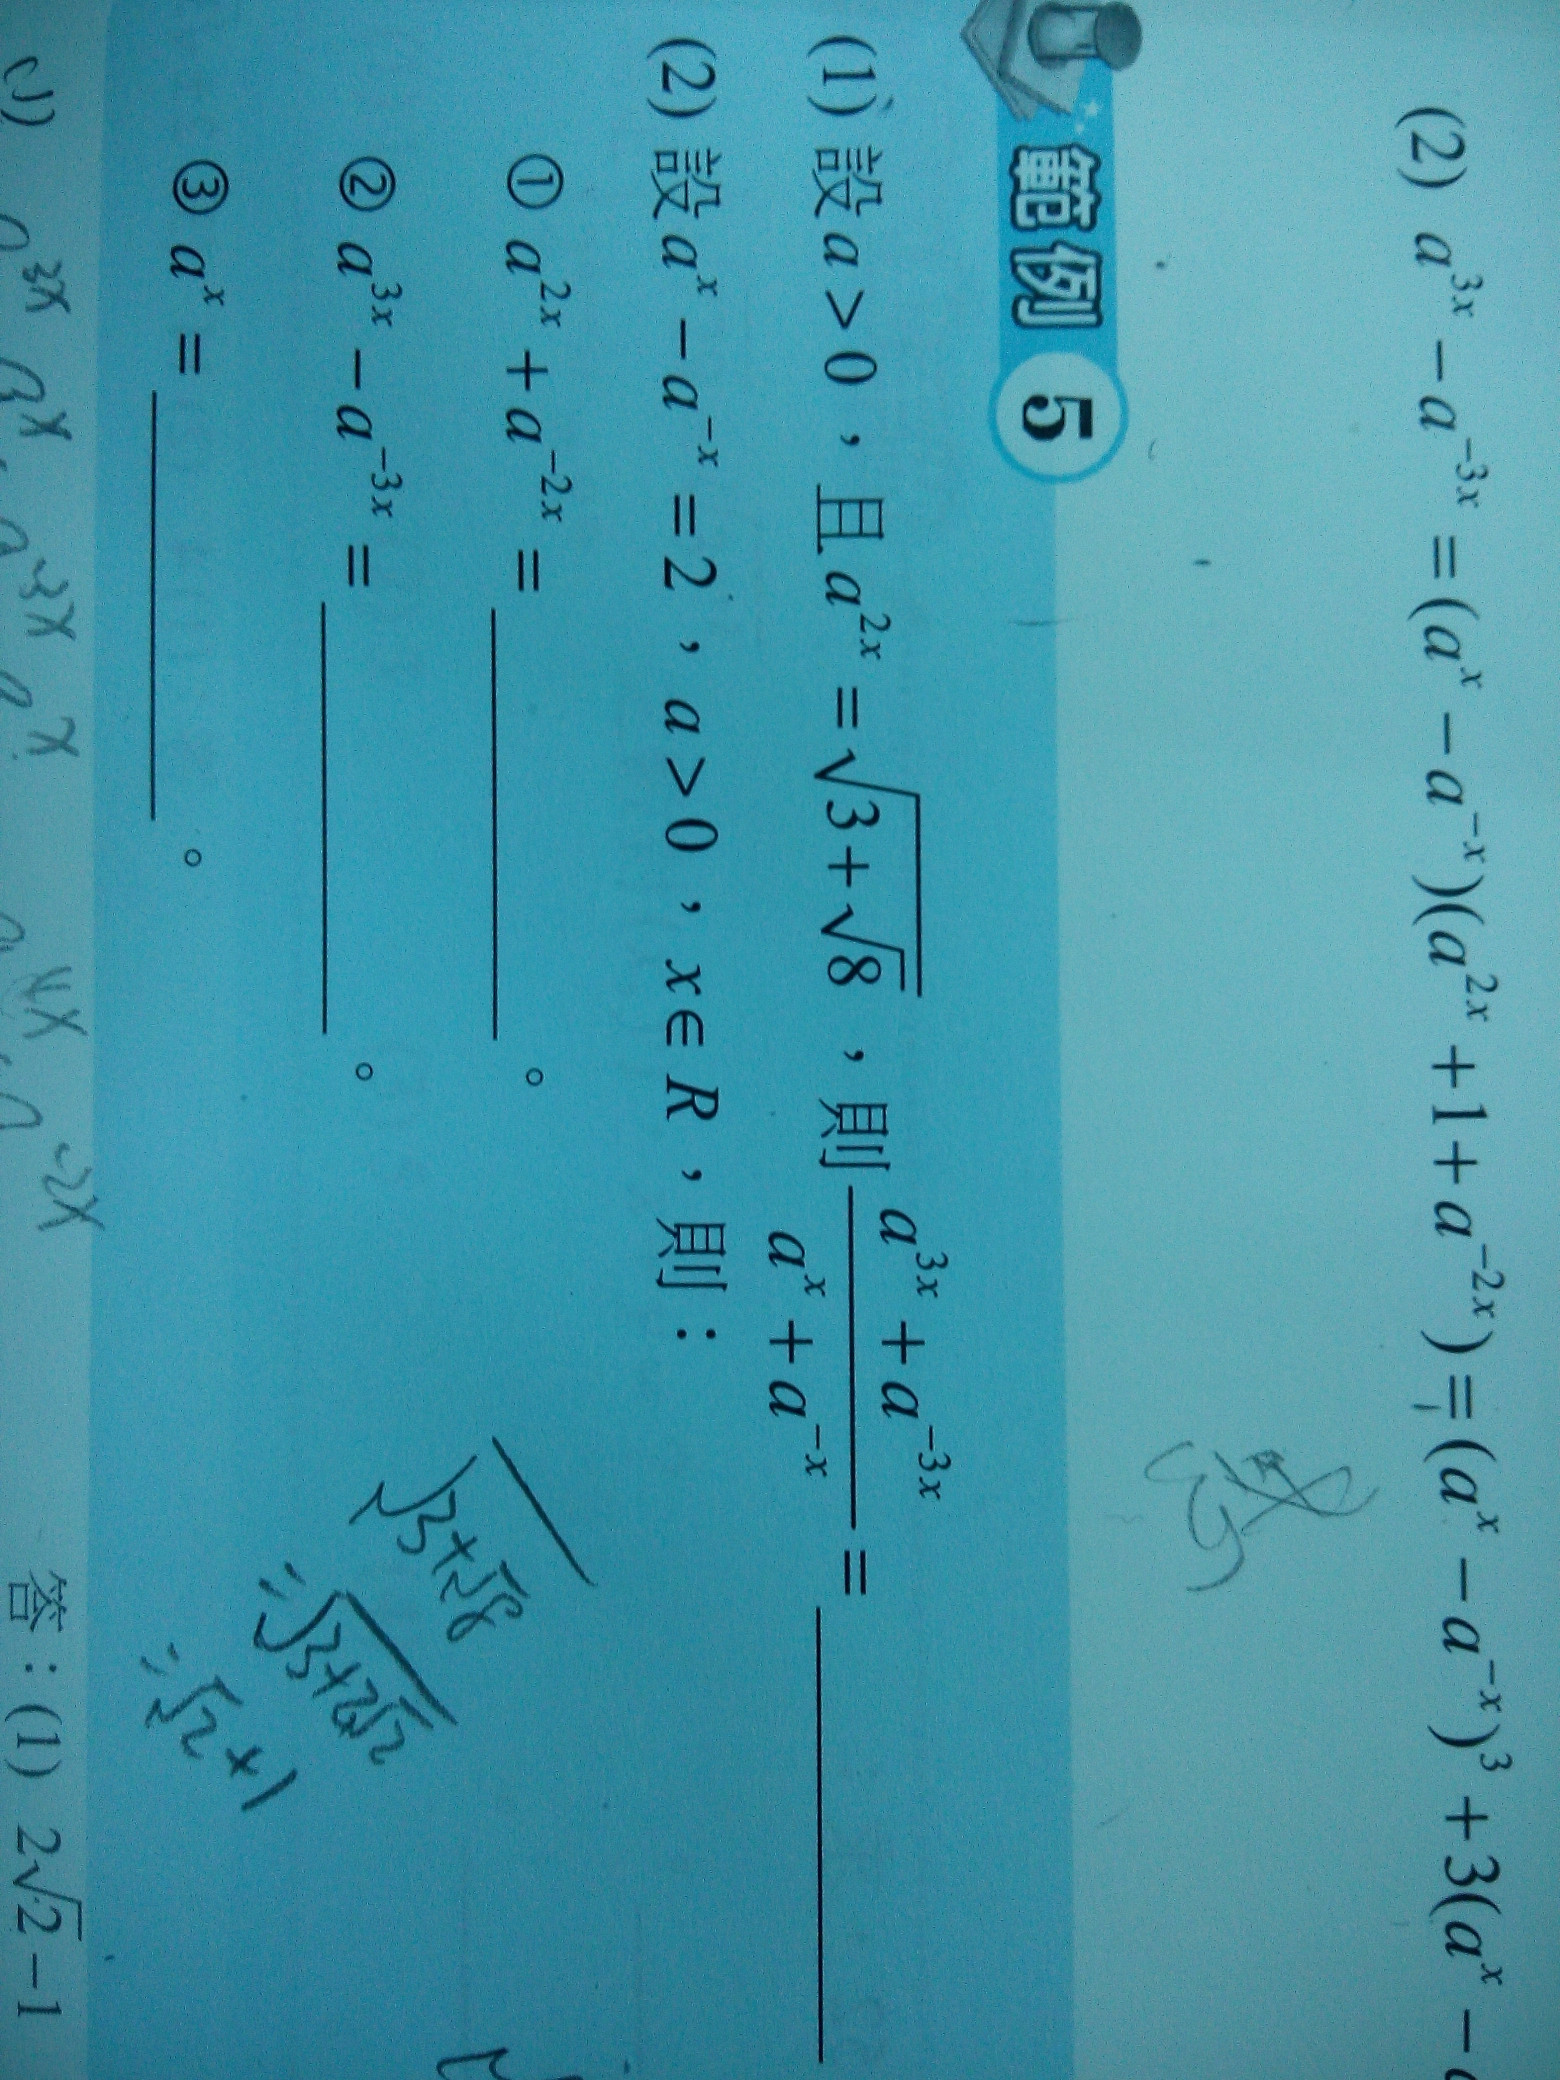 (2) a³ˣ − a⁻³ˣ = (aˣ − a⁻ˣ)(a²ˣ + 1 + a⁻²ˣ) = (aˣ − a⁻ˣ)³ + 3(aˣ −
範例 5
(1) 設 a > 0，且 a²ˣ = √(3+√8)，則 (a³ˣ + a⁻³ˣ)/(aˣ + a⁻ˣ) = ______
(2) 設 aˣ − a⁻ˣ = 2，a > 0，x ∈ R，則：
① a²ˣ + a⁻²ˣ = ______。
② a³ˣ − a⁻³ˣ = ______。
③ aˣ = ______。
√(3+√8)
=√(3+2√2)
=√2+1
答：(1) 2√2 − 1
(1) a³ˣ aˣ a⁻³ˣ aˣ a⁴ˣ a⁻²ˣ